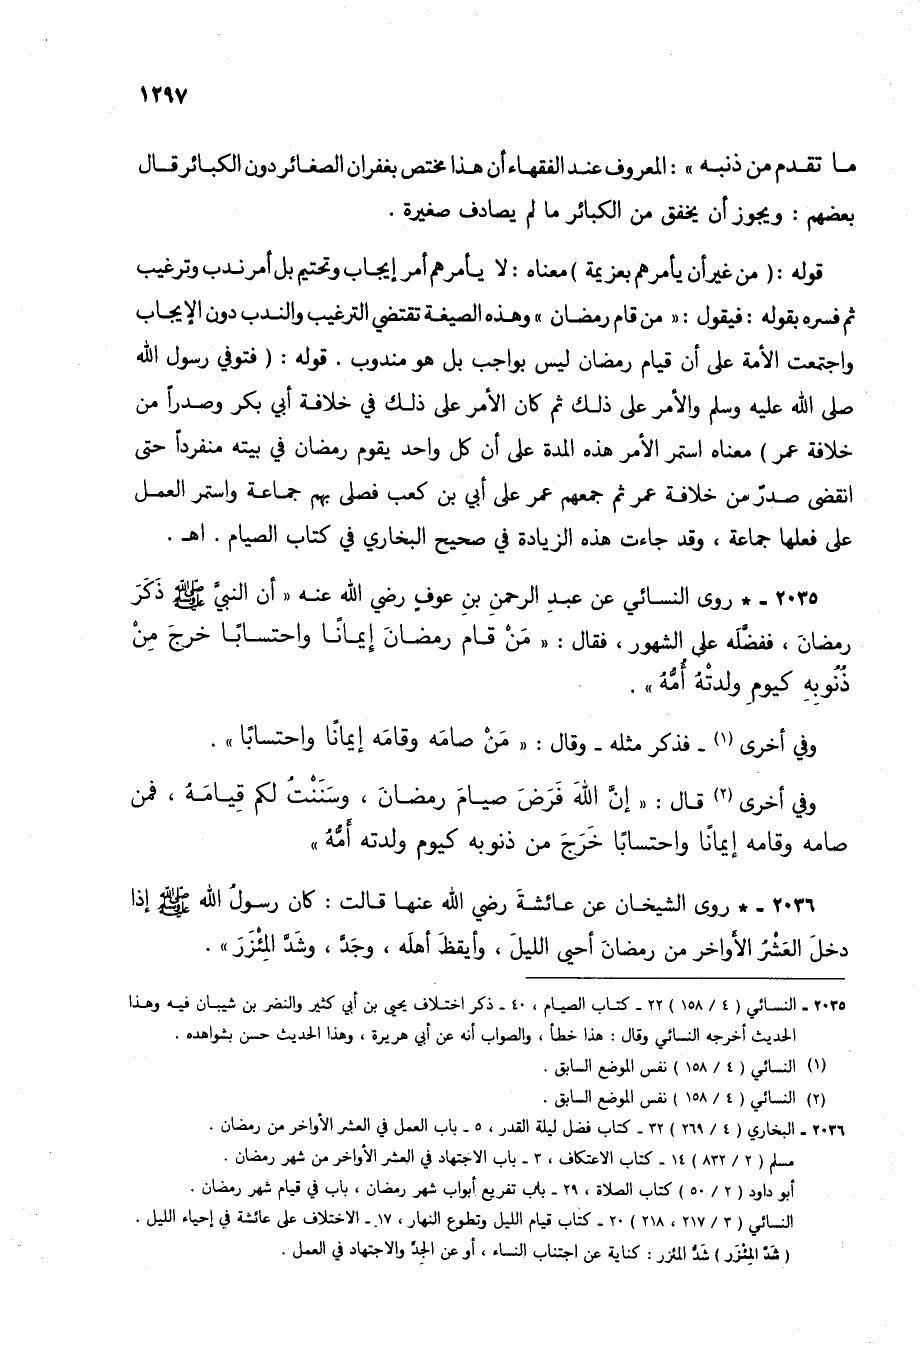 ١٢٩٧
ما تقدم من ذنبه » : المعروف عند الفقهاء أن هذا مختص بغفران الصغائر دون الكبائر قال
بعضهم : ويجوز أن يخفق من الكبائر ما لم يصادف صغيرة .
قوله : ( من غير أن يأمرهم بعزيمة ) معناه : لا يأمرهم أمر إيجاب وتحتيم بل أمر ندب وترغيب
ثم فسره بقوله : فيقول : « من قام رمضان » وهذه الصيغة تقتضي الترغيب والندب دون الإيجاب
واجتمعت الأمة على أن قيام رمضان ليس بواجب بل هو مندوب . قوله : ( فتوفي رسول الله
صلى الله عليه وسلم والأمر على ذلك ثم كان الأمر على ذلك في خلافة أبي بكر وصدراً من
خلافة عمر ) معناه استمر الأمر هذه المدة على أن كل واحد يقوم رمضان في بيته منفرداً حتى
انقضى صدرٌ من خلافة عمر ثم جمعهم عمر على أبي بن كعب فصلى بهم جماعة واستمر العمل
على فعلها جماعة ، وقد جاءت هذه الزيادة في صحيح البخاري في كتاب الصيام . اهـ .
٢٠٣٥ - * روى النسائي عن عبدِ الرحمنِ بنِ عوفٍ رضي الله عنه « أن النبيَّ ﷺ ذَكَرَ
رمضانَ ، ففضَّلَه على الشهورِ ، فقال : « مَنْ قام رمضانَ إيمانًا واحتسابًا خرجَ مِنْ
ذُنُوبِهِ كيومِ ولدتْهُ أُمُّهُ » .
وفي أخرى (١) - فذكر مثله - وقال : « مَنْ صامَه وقامَه إيمانًا واحتسابًا » .
وفي أخرى (٢) قال : « إنَّ اللهَ فَرَضَ صيامَ رمضانَ ، وسَنَنْتُ لكم قِيامَهُ ، فمن
صامه وقامه إيمانًا واحتسابًا خَرَجَ من ذنوبه كيوم ولدته أُمُّهُ »
٢٠٣٦ - * روى الشيخان عن عائشةَ رضي الله عنها قالت : كان رسولُ الله ﷺ إذا
دخلَ العَشْرُ الأواخر من رمضانَ أحيى الليلَ ، وأيقظَ أهلَه ، وجَدَّ ، وشَدَّ المِئْزَرَ » .
٢٠٣٥ - النسائي ( ٤ / ١٥٨ ) ٢٢ - كتاب الصيام ، ٤٠ - ذكر اختلاف يحيى بن أبي كثير والنضر بن شيبان فيه وهذا
الحديث أخرجه النسائي وقال : هذا خطأ ، والصواب أنه عن أبي هريرة ، وهذا الحديث حسن بشواهده .
(١) النسائي ( ٤ / ١٥٨ ) نفس الموضع السابق .
(٢) النسائي ( ٤ / ١٥٨ ) نفس الموضع السابق .
٢٠٣٦ - البخاري ( ٤ / ٢٦٩ ) ٣٢ - كتاب فضل ليلة القدر ، ٥ - باب العمل في العشر الأواخر من رمضان .
مسلم ( ٢ / ٨٣٢ ) ١٤ - كتاب الاعتكاف ، ٣ - باب الاجتهاد في العشر الأواخر من شهر رمضان .
أبو داود ( ٢ / ٥٠ ) كتاب الصلاة ، ٢٩ - باب تفريع أبواب شهر رمضان ، باب في قيام شهر رمضان .
النسائي ( ٣ / ٢١٧ ، ٢١٨ ) ٢٠ - كتاب قيام الليل وتطوع النهار ، ١٧ - الاختلاف على عائشة في إحياء الليل .
( شَدَّ المِئْزَر ) شَدُّ المئزر : كناية عن اجتناب النساء ، أو عن الجِدِّ والاجتهاد في العمل .